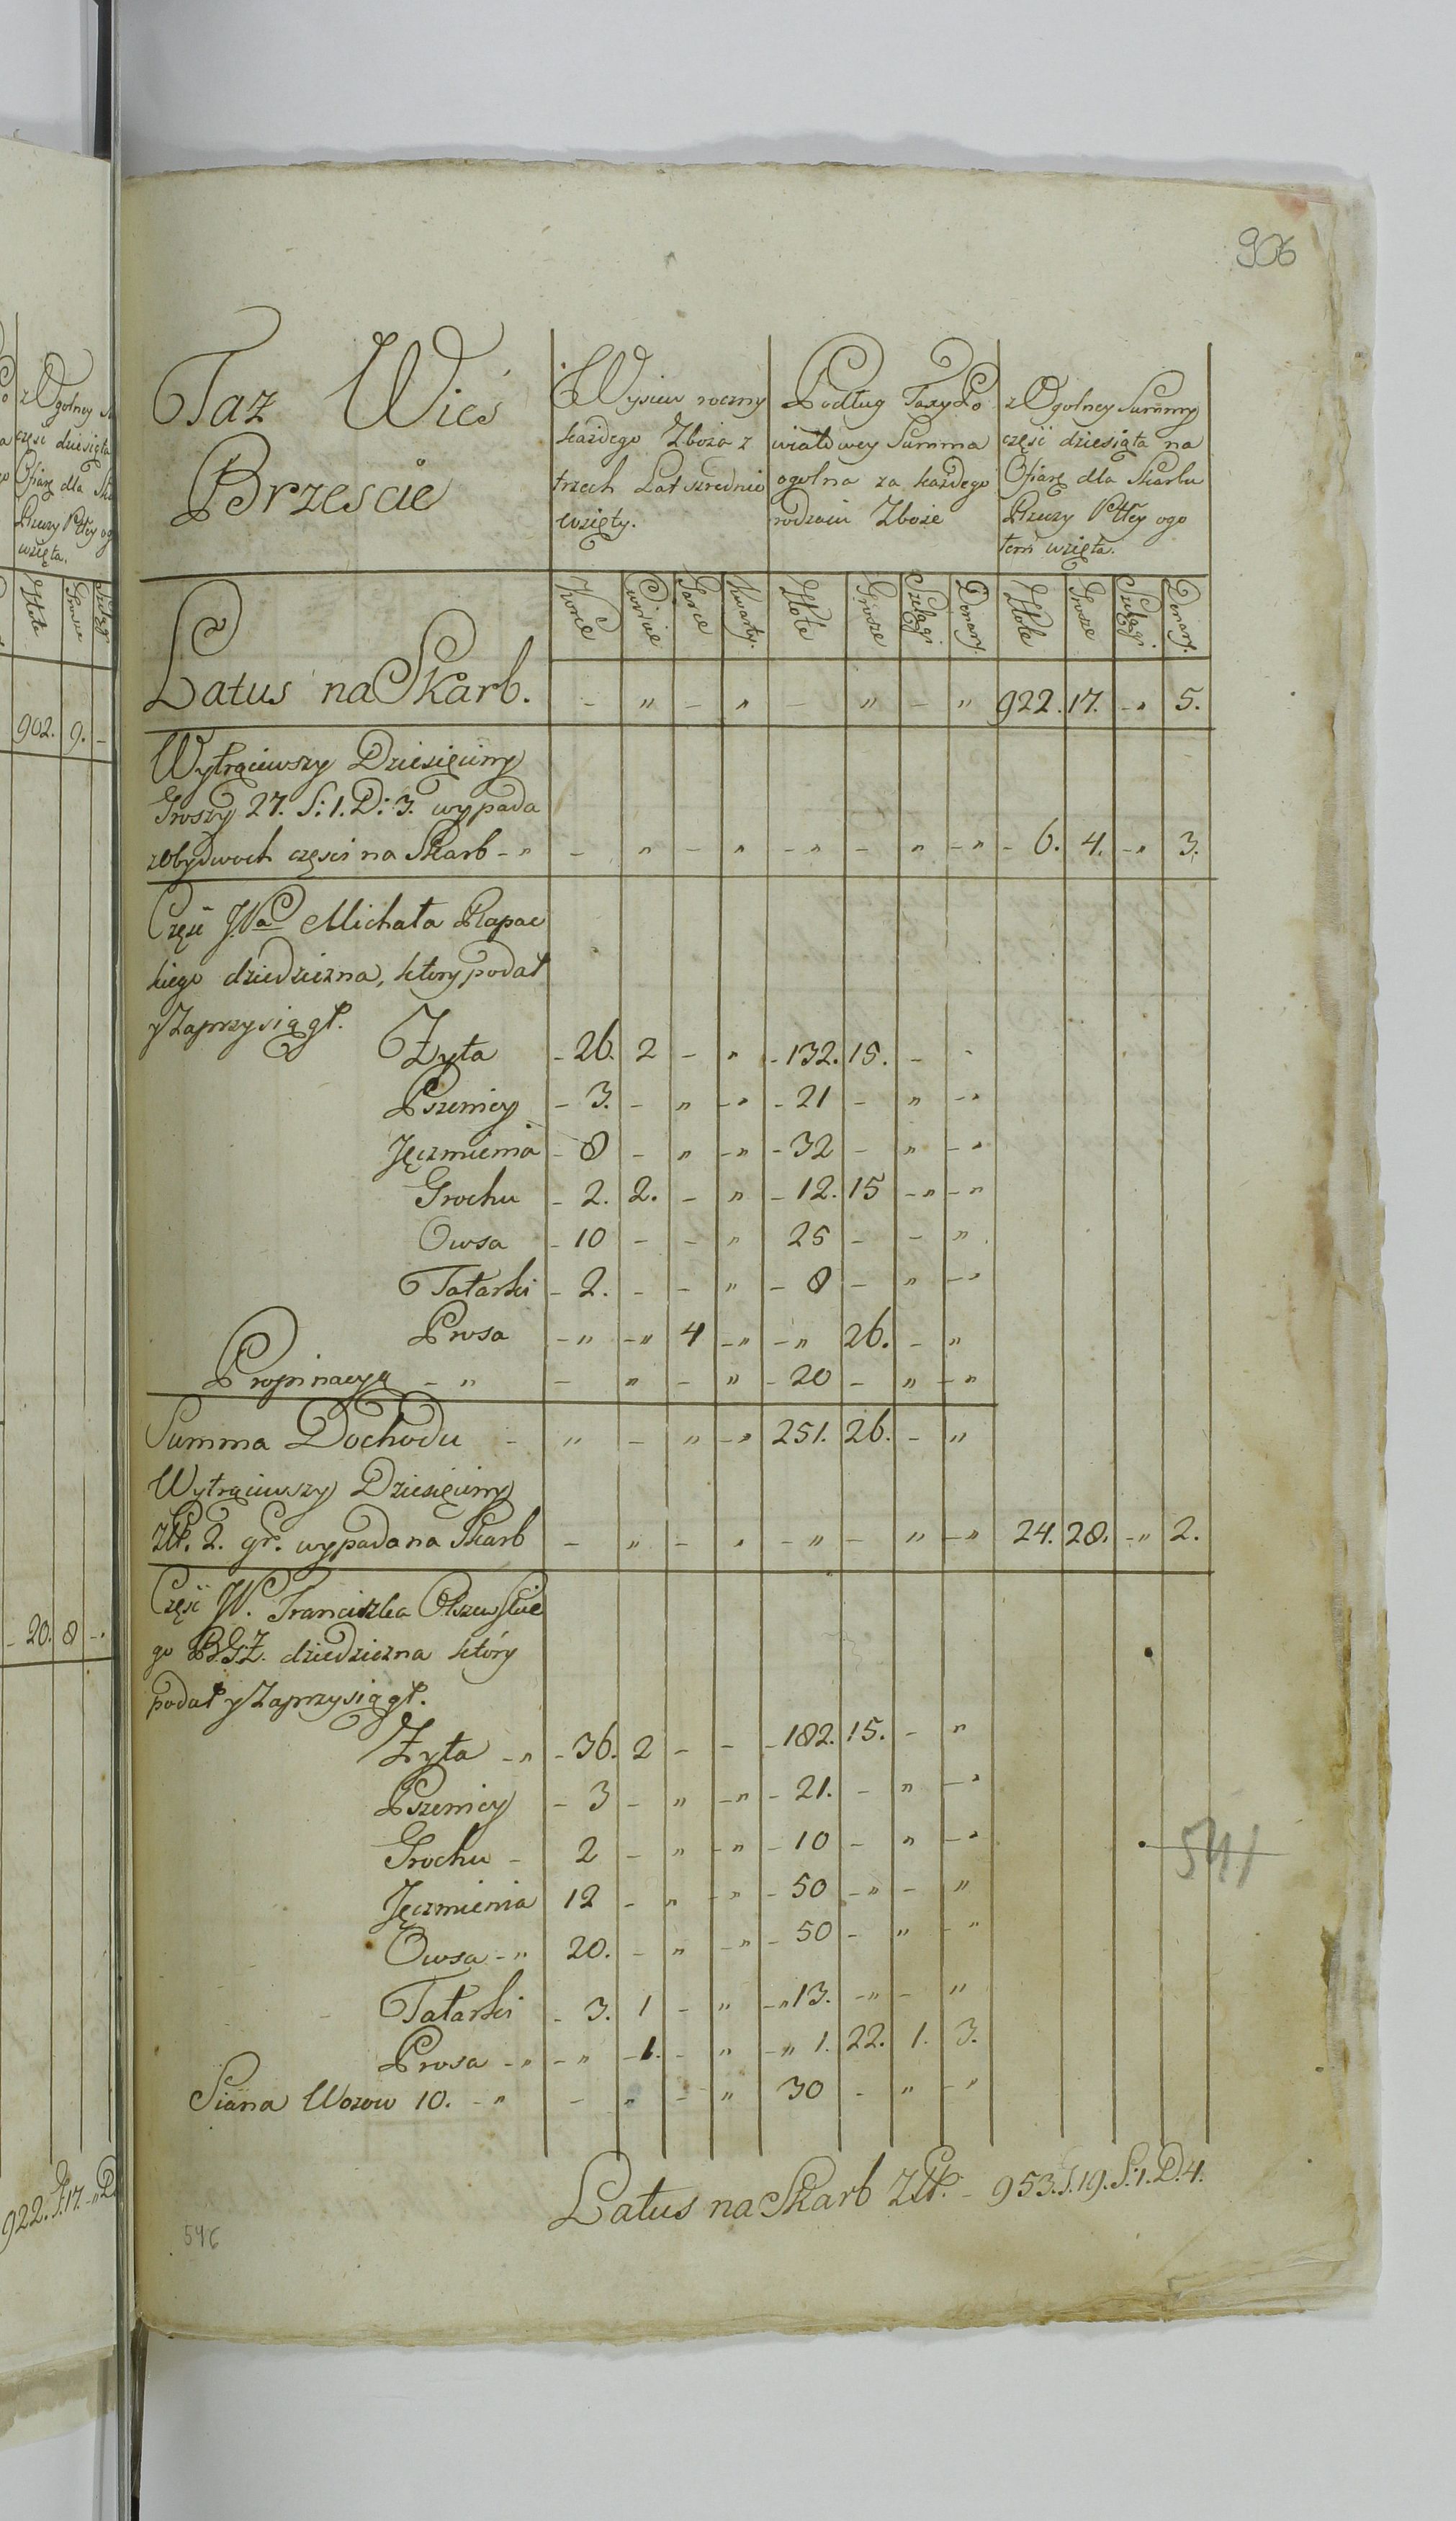 906
Taz Wieś
Brzescie
Wysiew roczny
każdego Zboża z
trzech Lat srzednio
wzięty.
Podług Taxy Po
wiatowey Summa
ogolna za każdego
rodzaiu Zboże
z Ogolney Summy
część dziesiąta na
Ofiarę dla Skarbu
Rzeczy Pltey ogo
łem wzięta.
Korce Cwircie Garce Kwarty. Złote Grosze Szelągi Denary. Złote Grosze Szelągi Denary.
Latus na Skarb. - „ - „ - „ - „ 922. 17. - „ 5.
Wytrąciwszy Dziesięciny
Groszy 27. S: 1. D: 3. wypada
z obydwoch częsci na Skarb - „ - „ - „ - „ - „ - „ - 6. 4. - „ 3.
Część Michała Rapac
kiego dziedziczna, ktory podał
y Zaprzysiągł.
Zyta - 26. 2 - „ - 132. 15. - -
Pszenicy - 3. - „ - „ - 21 - „ - „
Jęczmienia - 8 - „ - „ - 32 - „ - „
Grochu - 2. 2. - „ - 12. 15 - „ - „
Owsa - 10 - - „ 25 - - „
Tatarki - 2. - - „ - 8 - „ - „
Prosa - „ - „ 4 - „ - „ 26. - „
Propinacya - „ - „ - „ - 20 - „ - „
Summa Dochodu - „ - „ - „ 251. 26. - „
Wytrąciwszy Dziesięciny
Złt. 2. gr. wypada na Skarb - „ - „ - „ - „ - „ 24. 28. - „ 2.
Część W. Franciszka Olszewskie
go B.G.Z. dziedziczna który
podał y Zaprzysiągł.
Zyta - „ - 36. 2 - - - 182. 15. - „
Pszenicy - 3 - „ - „ - 21. - „ - „
Grochu - 2 - „ - „ - 10 - „ - „
Jęczmienia 12 - „ - „ - 50 - „ - „
Owsa - „ 20. - „ - „ - 50 - „ - „
Tatarki - 3. 1 - „ - „ 13. - „ - „
Prosa - „ - „ - 1. - „ - „ 1. 22. 1. 3.
Siana Wozow 10. - „ - „ - „ 30 - „ - „
Latus na Skarb Złt. - 953. g. 19. S. 1. D. 4.
541
546
z Ogolney
część dziesiąta
Ofiarę dla
Rzeczy Pltey
wzięta.
Złote Grosze
902. 9. -
- 20. 8 - „
922. g. 17. - „ D